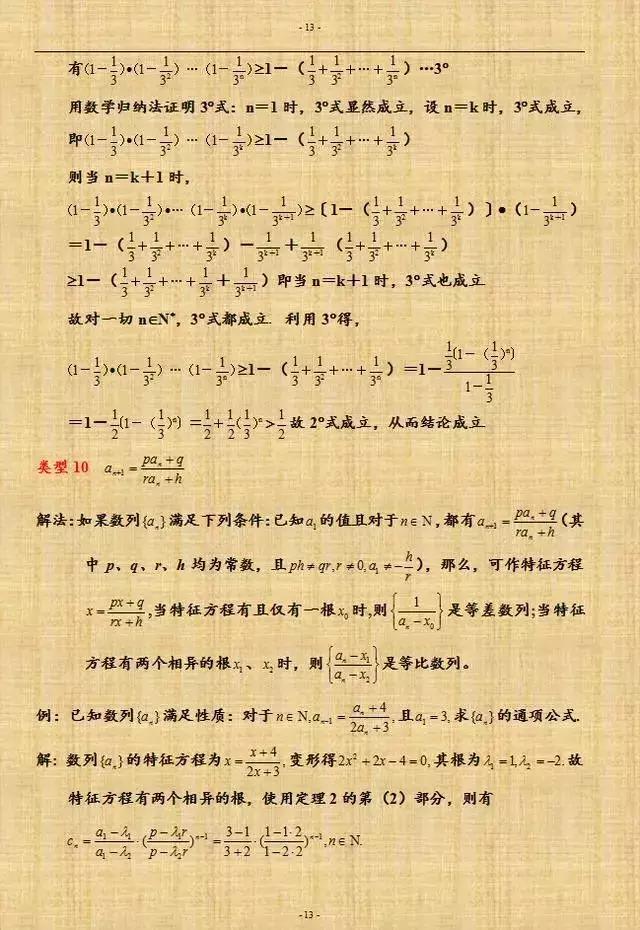 - 13 -
有(1－1/3)•(1－1/3²) … (1－1/3ⁿ)≥1－（1/3＋1/3²＋…＋1/3ⁿ）…3°
用数学归纳法证明3°式：n＝1时，3°式显然成立，设n＝k时，3°式成立，
即(1－1/3)•(1－1/3²) … (1－1/3ᵏ)≥1－（1/3＋1/3²＋…＋1/3ᵏ）
则当n＝k＋1时，
(1－1/3)•(1－1/3²)•… (1－1/3ᵏ)•(1－1/3ᵏ⁺¹)≥〔1－（1/3＋1/3²＋…＋1/3ᵏ）〕•（1－1/3ᵏ⁺¹）
＝1－（1/3＋1/3²＋…＋1/3ᵏ）－1/3ᵏ⁺¹＋1/3ᵏ⁺¹（1/3＋1/3²＋…＋1/3ᵏ）
≥1－（1/3＋1/3²＋…＋1/3ᵏ＋1/3ᵏ⁺¹）即当n＝k＋1时，3°式也成立
故对一切n∈N*，3°式都成立. 利用3°得，
(1－1/3)•(1－1/3²) … (1－1/3ⁿ)≥1－（1/3＋1/3²＋…＋1/3ⁿ）＝1－(1/3(1－（1/3）ⁿ))/(1－1/3)
＝1－1/2(1－（1/3)ⁿ)＝1/2＋1/2(1/3)ⁿ＞1/2故2°式成立，从而结论成立
类型10 aₙ₊₁=(paₙ+q)/(raₙ+h)
解法:如果数列{aₙ}满足下列条件:已知a₁的值且对于n∈N,都有aₙ₊₁=(paₙ+q)/(raₙ+h)（其
中p、q、r、h均为常数，且ph≠qr,r≠0,a₁≠-h/r），那么，可作特征方程
x=(px+q)/(rx+h),当特征方程有且仅有一根x₀时,则{1/(aₙ-x₀)}是等差数列;当特征
方程有两个相异的根x₁、x₂时，则{(aₙ-x₁)/(aₙ-x₂)}是等比数列。
例：已知数列{aₙ}满足性质：对于n∈N,aₙ₋₁=(aₙ+4)/(2aₙ+3),且a₁=3,求{aₙ}的通项公式.
解: 数列{aₙ}的特征方程为x=(x+4)/(2x+3),变形得2x²+2x-4=0,其根为λ₁=1,λ₂=-2.故
特征方程有两个相异的根，使用定理2的第（2）部分，则有
cₙ=(a₁-λ₁)/(a₁-λ₂)·((p-λ₁r)/(p-λ₂r))ⁿ⁻¹=(3-1)/(3+2)·((1-1·2)/(1-2·2))ⁿ⁻¹,n∈N.
- 13 -